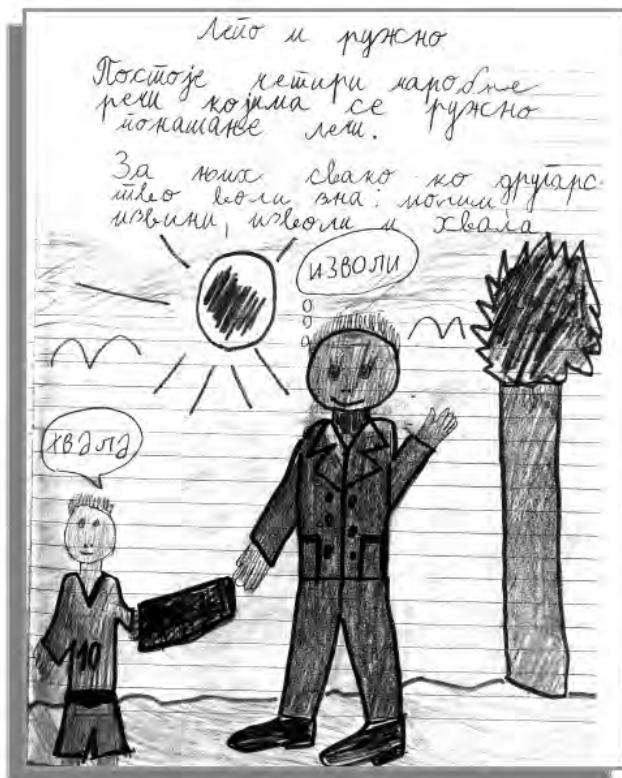 Лепо и ружно
Постоје четири чаробне
речи којима се ружно
понашање лечи.
За њих свако ко другарс-
тво воли зна: молим
извини, изволи и хвала
ИЗВОЛИ
хвала
110